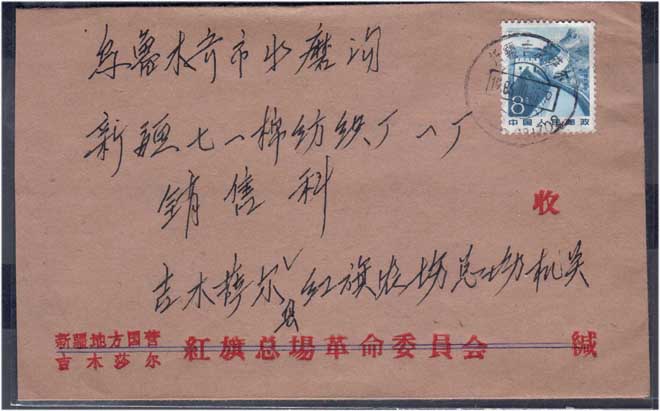 乌鲁木齐市水磨沟
新疆七一棉纺织厂八厂
销售科
收
吉木萨尔县红旗农场总场机关
新疆地方国营
吉木莎尔
紅旗总場革命委員会
缄
8
中国人民邮政